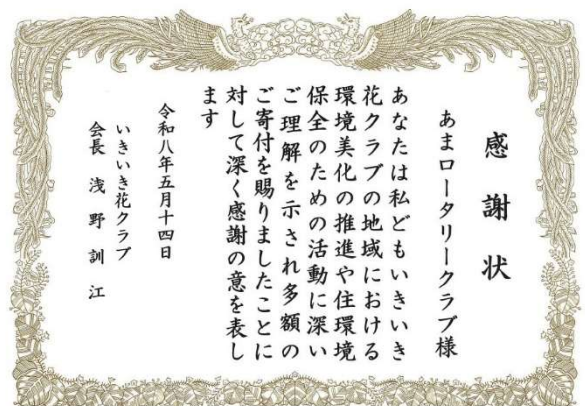 感謝状
あまロータリークラブ様
あなたは私どもいきいき
花クラブの地域における
環境美化の推進や住環境
保全のための活動に深い
ご理解を示され多額の
ご寄付を賜りましたことに
対して深く感謝の意を表し
ます
令和八年五月十四日
いきいき花クラブ
会長 浅野訓江